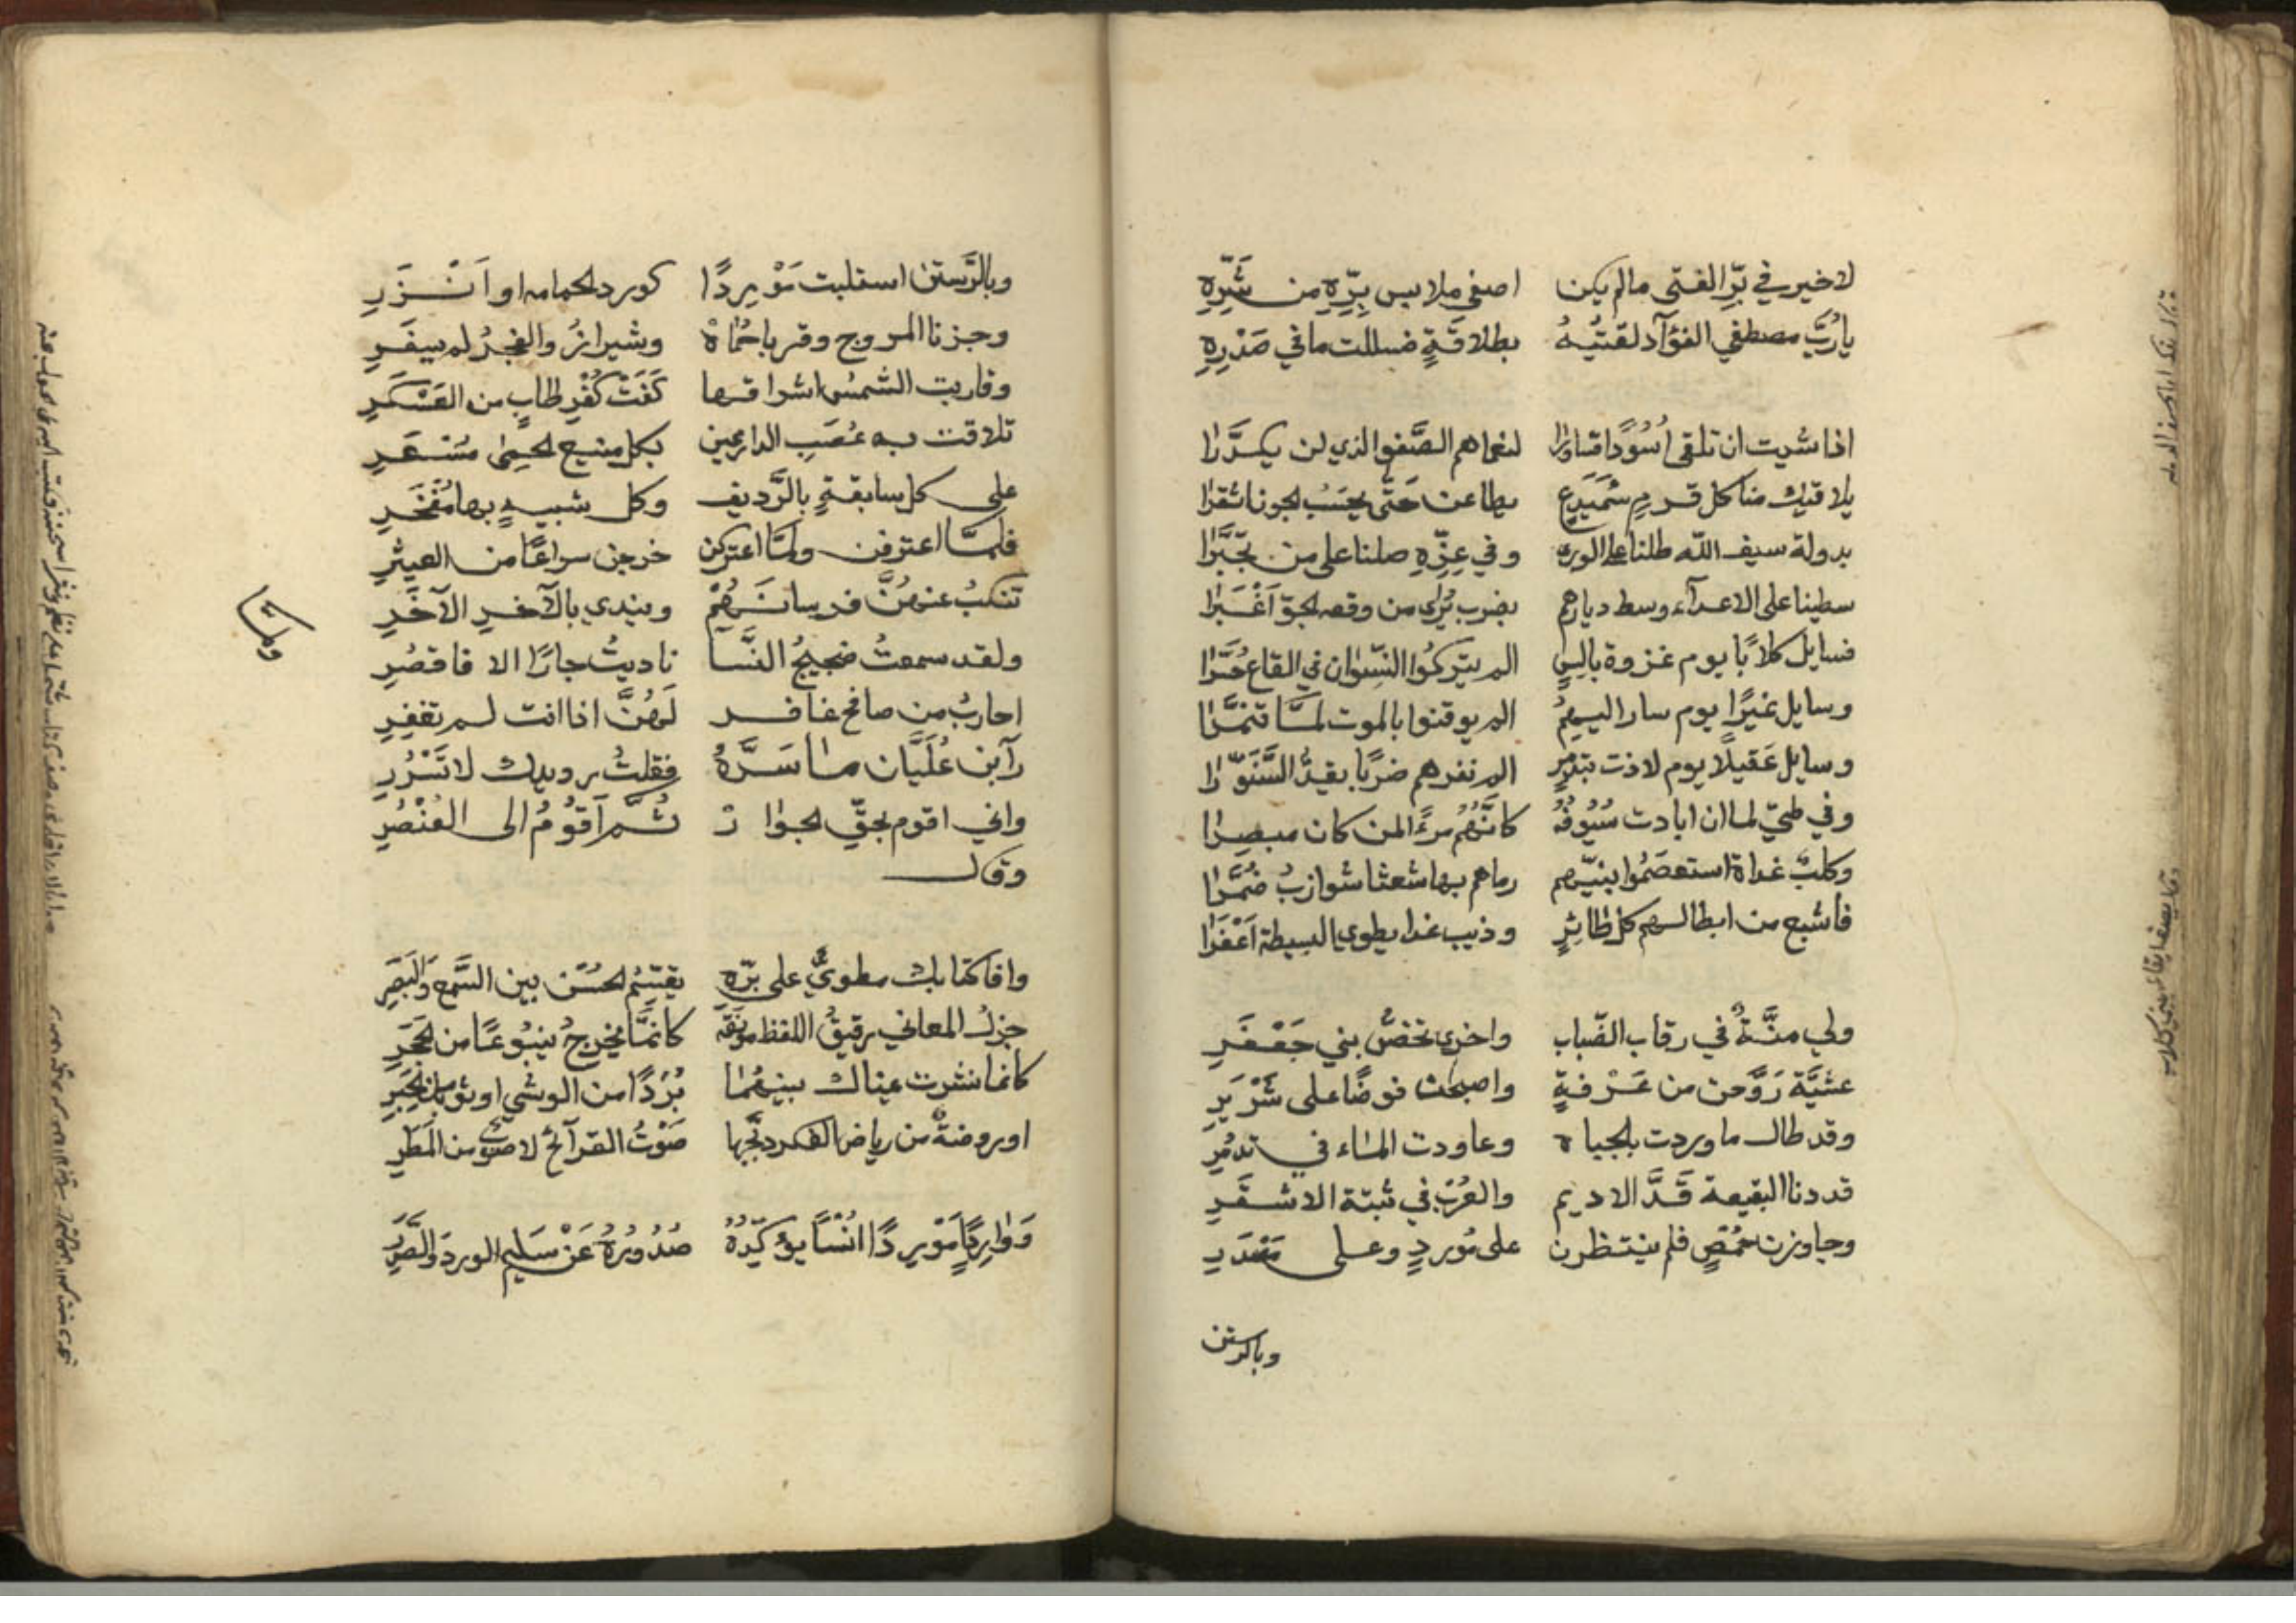 لا خير في برّ الفتى ما لم يكن اصفى ملابس برّه من شرّه
يا ربّ مصطفي الفؤآد لقيته بطلاقةٍ فسللت ما في صدره
اذا شيت ان تلقى اُسُودًا قساورا لنعماهم الصّفو الذي لن يكدّرا
يلاقيك منا كل قرم سَميدع يطاعن حتى يحسب الجون اشقرا
بدولة سيف الله طلنا على الورى وفي عزّه صلنا على من تجبّرا
سطينا على الاعدآء وسط ديارهم بضرب يُرى من وقعه الجوّ اَغْبَرا
فسايل كلابًا يوم غزوة بالِسٍ الم يتركُوا النّسْوان في القاع حُسّرا
وسايل نميرًا يوم سار اليهمُ الم يوقنوا بالموت لمّا تنمّرا
وسايل عَقيلًا يوم لاذت بتدمرٍ الم نقرهم ضربًا يقدّ السَّنَوّرا
وفي طيّ لما ان ابادت سُيُوفُهُ كُماتَهُم مرءً المن كان مبصرا
وكلبٌ غداة استعصَمُوا بنيّرهم رماهم بها شعثا شوازبُ ضُمَّرا
فاشبع من ابطالهم كل طائرٍ وذيب غدا يطوي البسيطة اَعْفَرا
ولي منّةٌ في رقاب الضّباب واخرى تخصّ بني جَعْفَرِ
عشيّة رَوَّحن من عَرْفةٍ واصبحن فوضًا على شَرْيَرِ
وقد طال ما وردت بالجباه وعاودت الماء في تدمُرِ
قددنا البقيعة قَدَّ الاديم والغرب في شبّة الاشقَرِ
وجاوزن حُمْصٍ فلم ينتظرن على مُوردٍ وعلى مَصْدَرِ
وبالرستن
وبالرَّستن استلبت مَوْرِدًا كورد الحمامه او اَنْزَرِ
وجزنا المروج وقرباحُماه وشيزر والفجرُ لم يسفَرِ
وقاربت الشمسُ اشراقها كَفَتْ كُفْرِ طابٍ من العَسْكَرِ
تلاقت به عُصَبِ الدارعين بكل منيع الحِمى مُسْعَرِ
على كل سابقةٍ بالرَّديف وكل شبيهٍ بها مُفْخَرِ
فلمّا اعترفن ولمّا اعتركن خرجن سراعًا من العيثرِ
تنكبُ عنهنَّ فرسانَهُمْ ويندي بالآخرِ الآخَرِ
ولقد سمعتُ ضجيجُ النّسآ ناديتُ جارًا الا فاقصُرِ
احاربُ من صافح غافر لَهُنَّ اذا انت لم تغفِرِ
رآبن عُلَيَّان ما سَرَّهُ فقلتُ رويدك لا تُسْرُرِ
واني اقوم بحقّ الجوار ثمّ اَقُومُ الى العُنْصُرِ
وقال
وافا كتابك مطويٌّ على برّه يقتسُم الحُسْن بين السَّمع والبَصَرِ
جزلُ المعاني رقيقُ اللفظ مونقَه كانمّا يخرجُ ينبُوعًا من الحَجَرِ
كانما نشرت عيناك بينهُمَا بُرْدًا من الوشي او ثوبًا من الحِبَرِ
او روضةٌ من رياض الفكر دبّجها صَوْتُ القرآئح لا صوب من المَطَرِ
وَوٰارِدٍ مَوْرِدًا اُنْسًا يؤكّدهُ صُدُورُهُ عَنْ سَليم الوردَ والصَّدَرِ
ولمّا